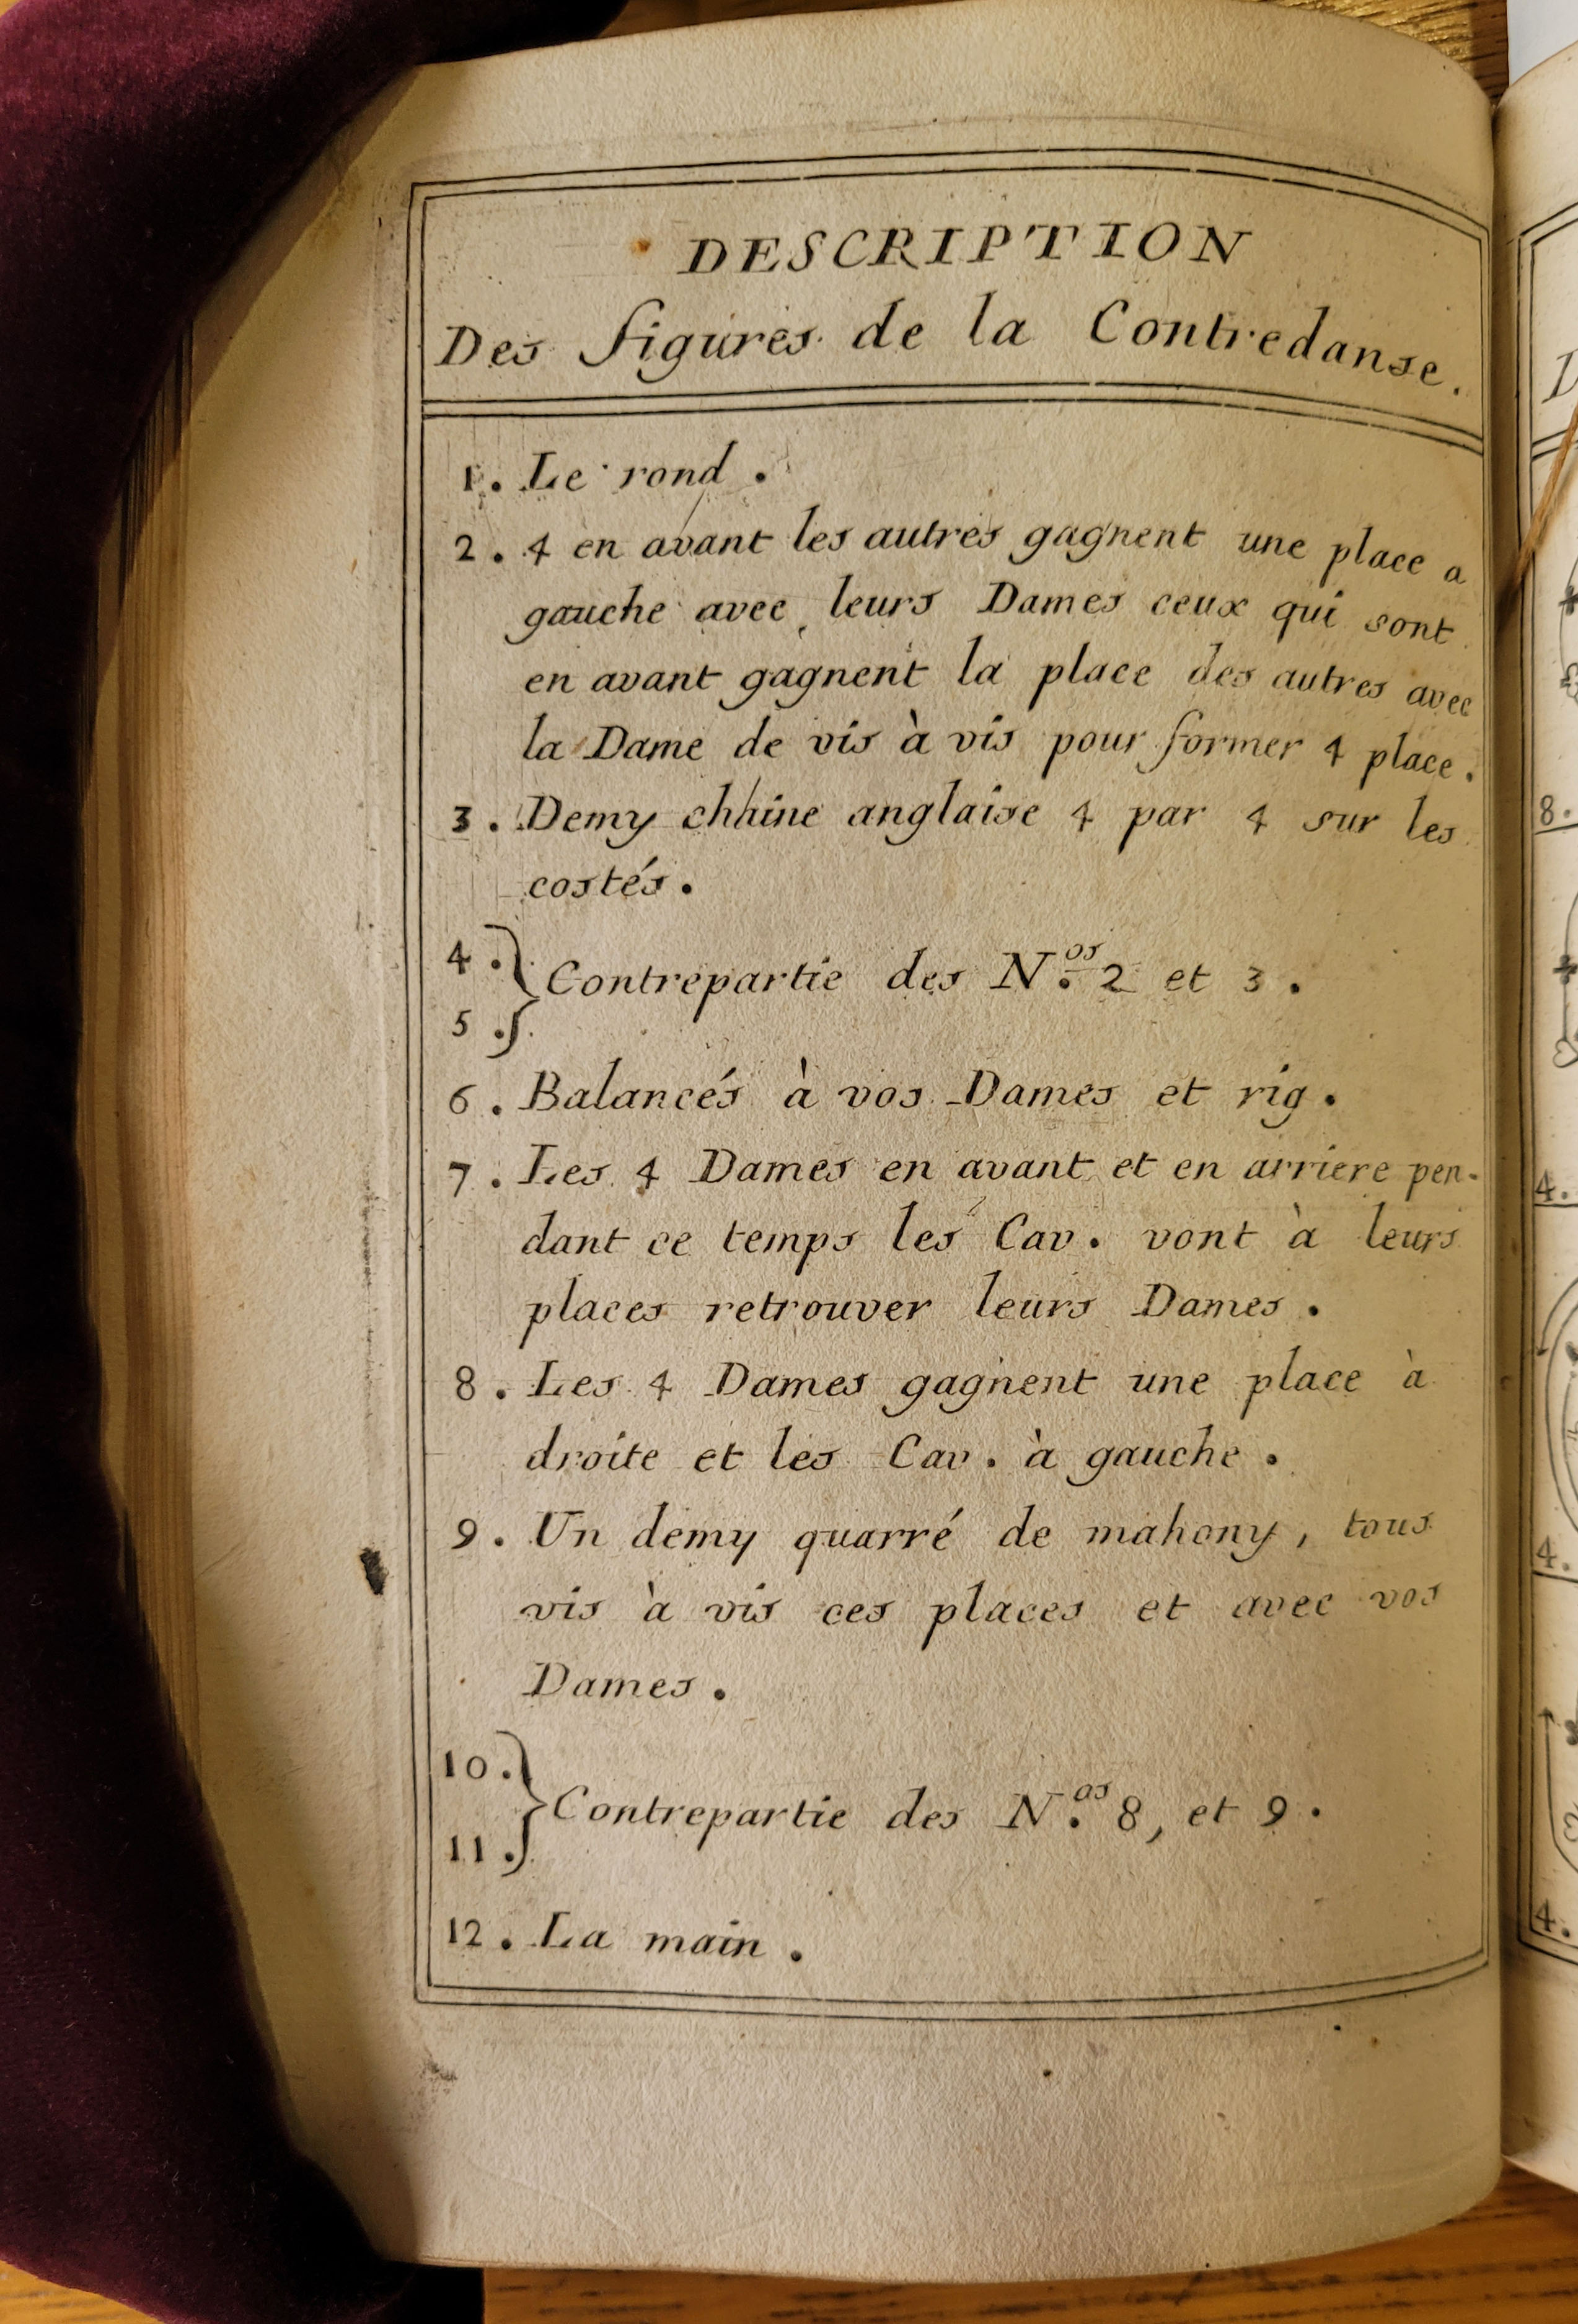 DESCRIPTION
Des figures de la Contredanse.
1. Le rond.
2. 4 en avant les autres gagnent une place a
gauche avec leurs Dames ceux qui sont
en avant gagnent la place des autres avec
la Dame de vis à vis pour former 4 place.
3. Demy chaine anglaise 4 par 4 sur les
costés.
4.
5.} Contrepartie des N.os 2 et 3.
6. Balancés à vos Dames et rig.
7. Les 4 Dames en avant et en arriere pen-
dant ce temps les Cav. vont à leurs
places retrouver leurs Dames.
8. Les 4 Dames gagnent une place à
droite et les Cav. à gauche.
9. Un demy quarré de mahony, tous
vis à vis ces places et avec vos
Dames.
10.
11.} Contrepartie des N.os 8, et 9.
12. La main.
8.
4.
4.
4.